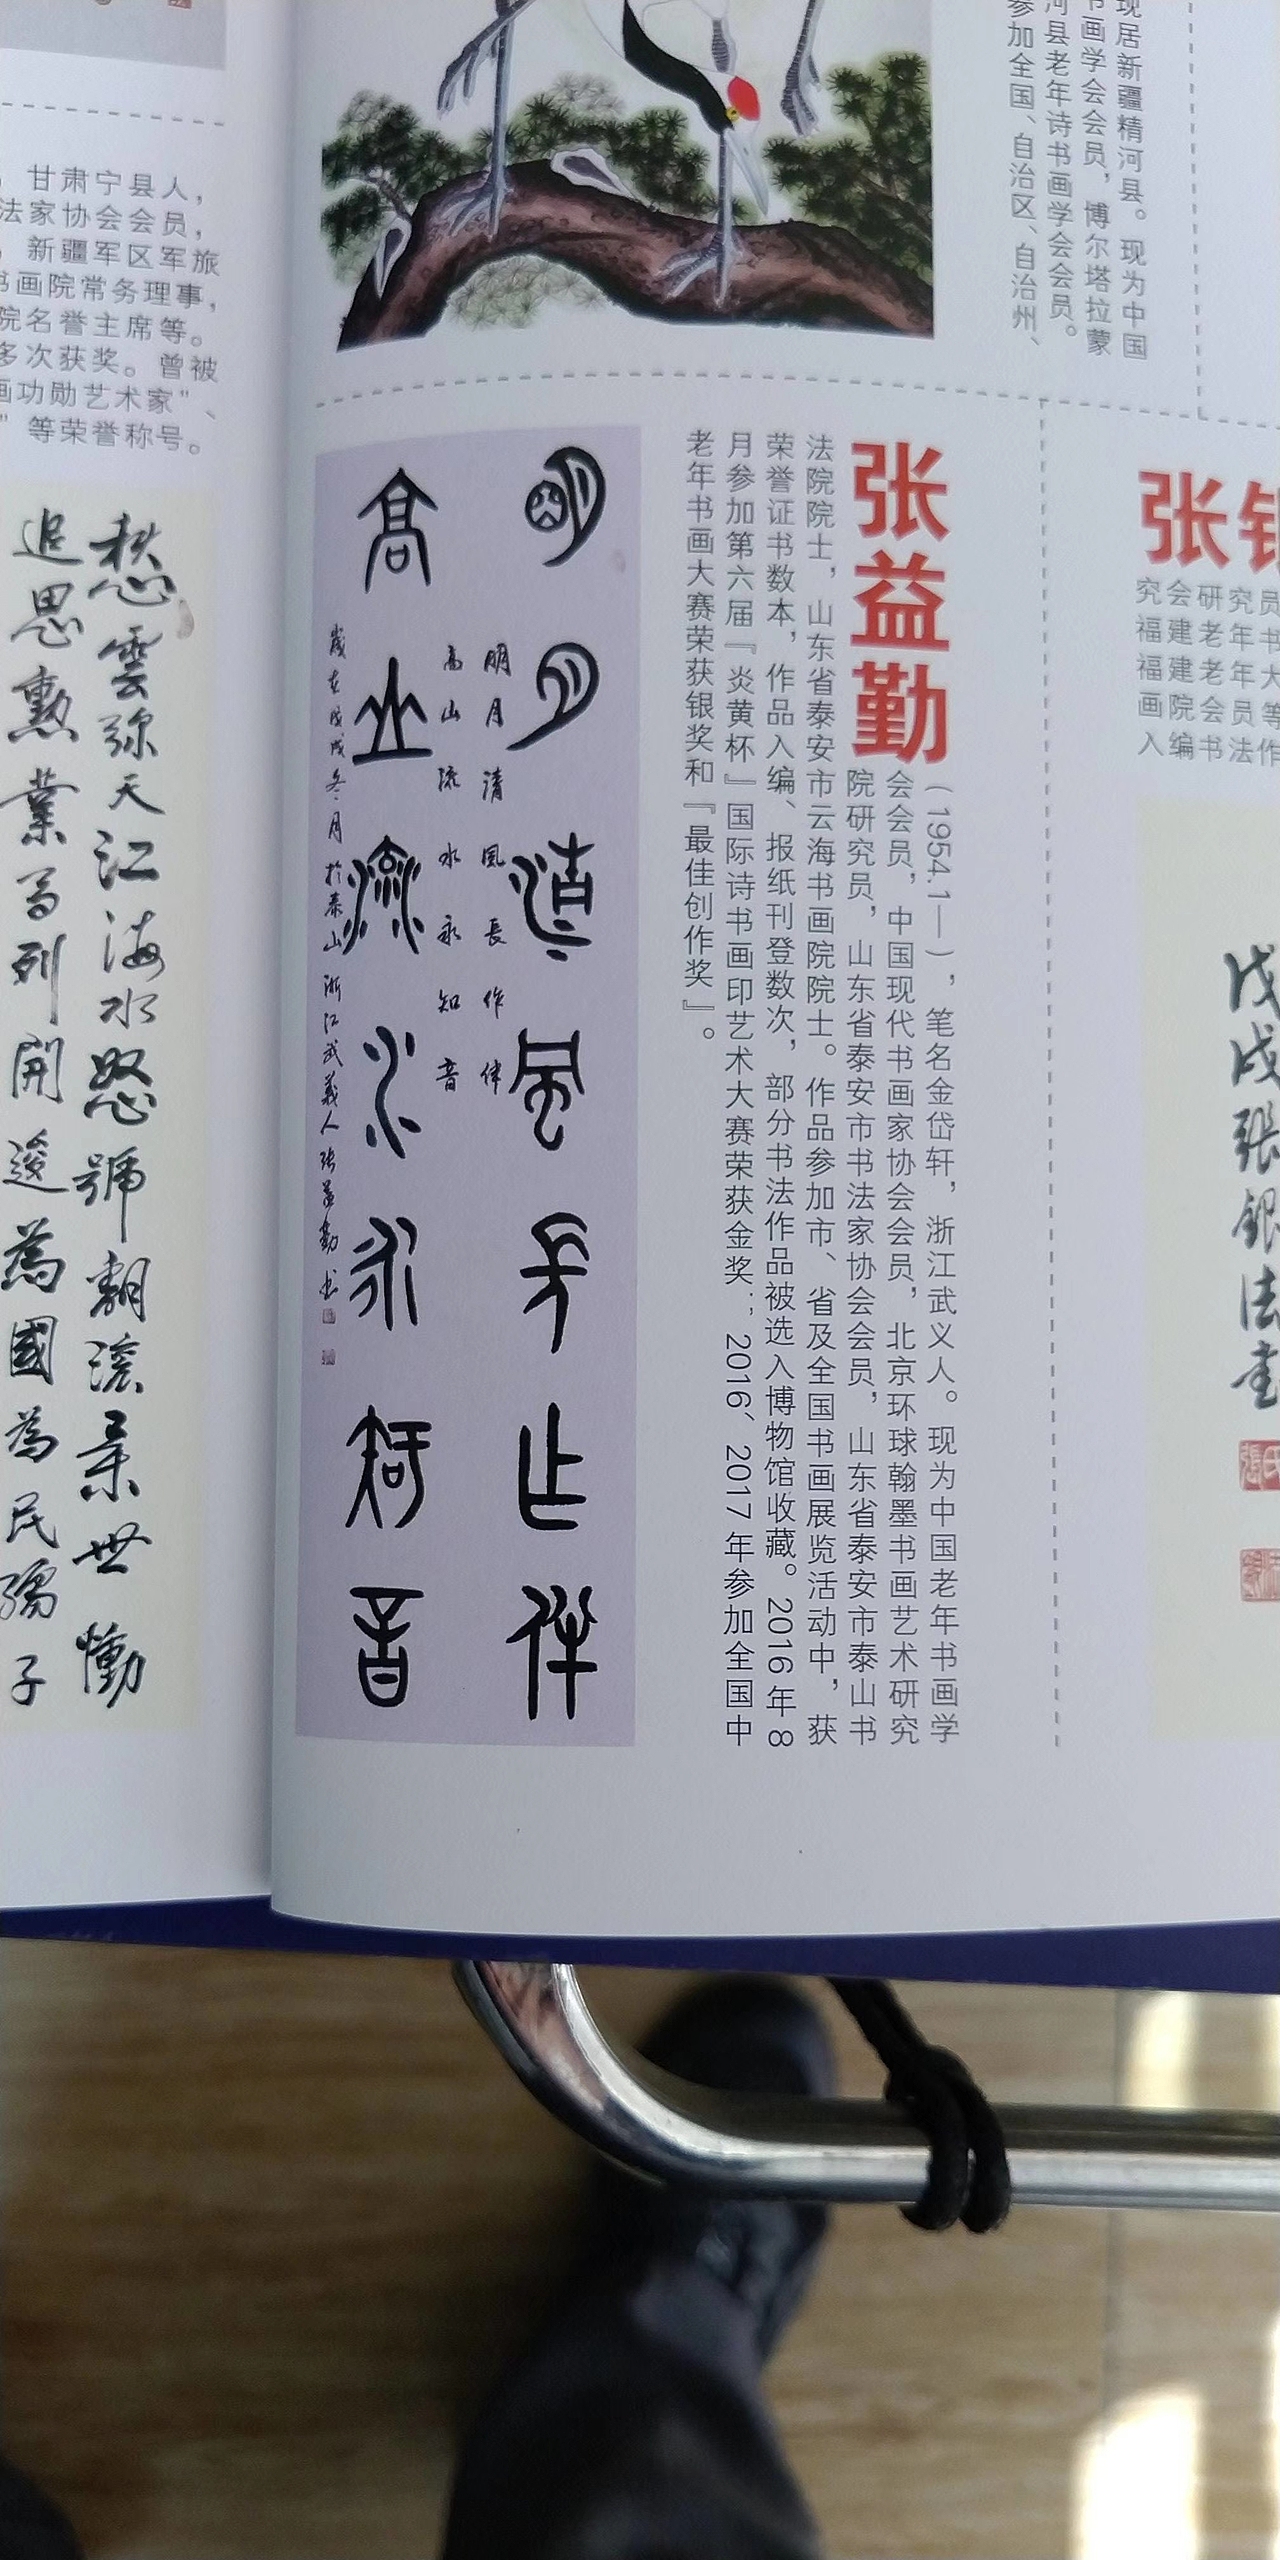 现居新疆精河县。现为中国
书画学会会员，博尔塔拉蒙
河县老年诗书画学会会员。
参加全国、自治区、自治州、
张益勤
（1954.1—），笔名金岱轩，浙江武义人。现为中国老年书画学
会会员，中国现代书画家协会会员，北京环球翰墨书画艺术研究
院研究员，山东省泰安市书法家协会会员，山东省泰安市泰山书
法院院士，山东省泰安市云海书画院院士。作品参加市、省及全国书画展览活动中，获
荣誉证书数本，作品入编、报纸刊登数次，部分书法作品被选入博物馆收藏。2016年8
月参加第六届『炎黄杯』国际诗书画印艺术大赛荣获金奖；2016、2017年参加全国中
老年书画大赛荣获银奖和『最佳创作奖』。
明月清风长作伴
高山流水永知音
明月清風長作伴
高山流水永知音
歲在戊戌冬月於泰山浙江武義人张益勤书
张银
究会研究员
福建老年书
福建老年大
画院会员等
入编书法作
戊戌張銀法書
甘肃宁县人，
法家协会会员，
新疆军区军旅
书画院常务理事，
院名誉主席等。
多次获奖。曾被
画功勋艺术家”、
”等荣誉称号。
愁雲弥天江海水怒號翻滚舉世慟
追思勲業
列開
為國為民
子